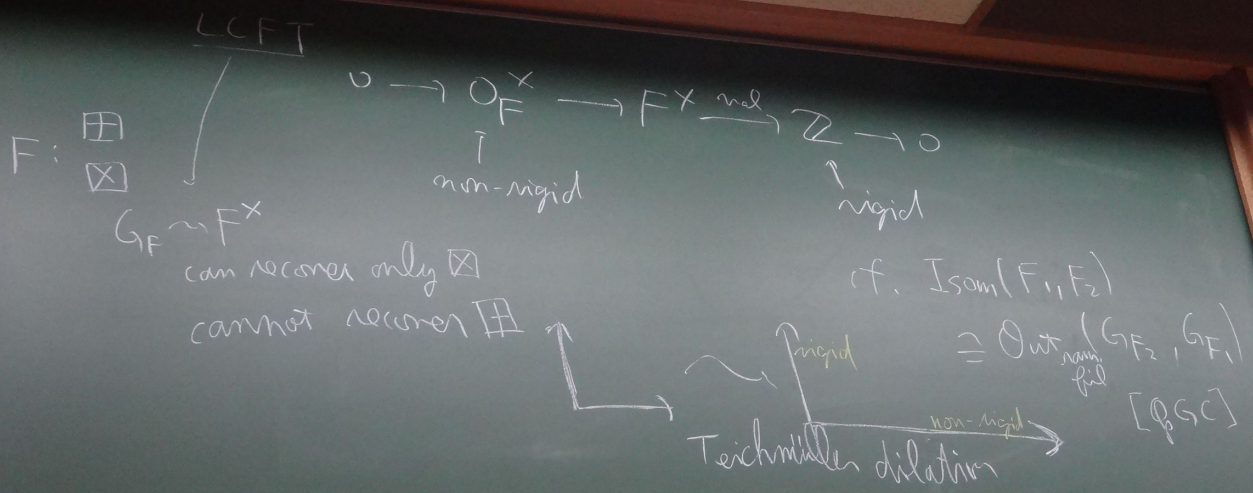 LCFT
0 → O_F^× → F^× —val→ ℤ → 0
F: ⊞
⊠
non-rigid
rigid
G_F ⤳ F^×
can recover only ⊠
cannot recover ⊞
cf. Isom(F₁, F₂)
≅ Out_{ram. fil}(G_{F₂}, G_{F₁})
[QGC]
rigid
non-rigid
Teichmüller dilation